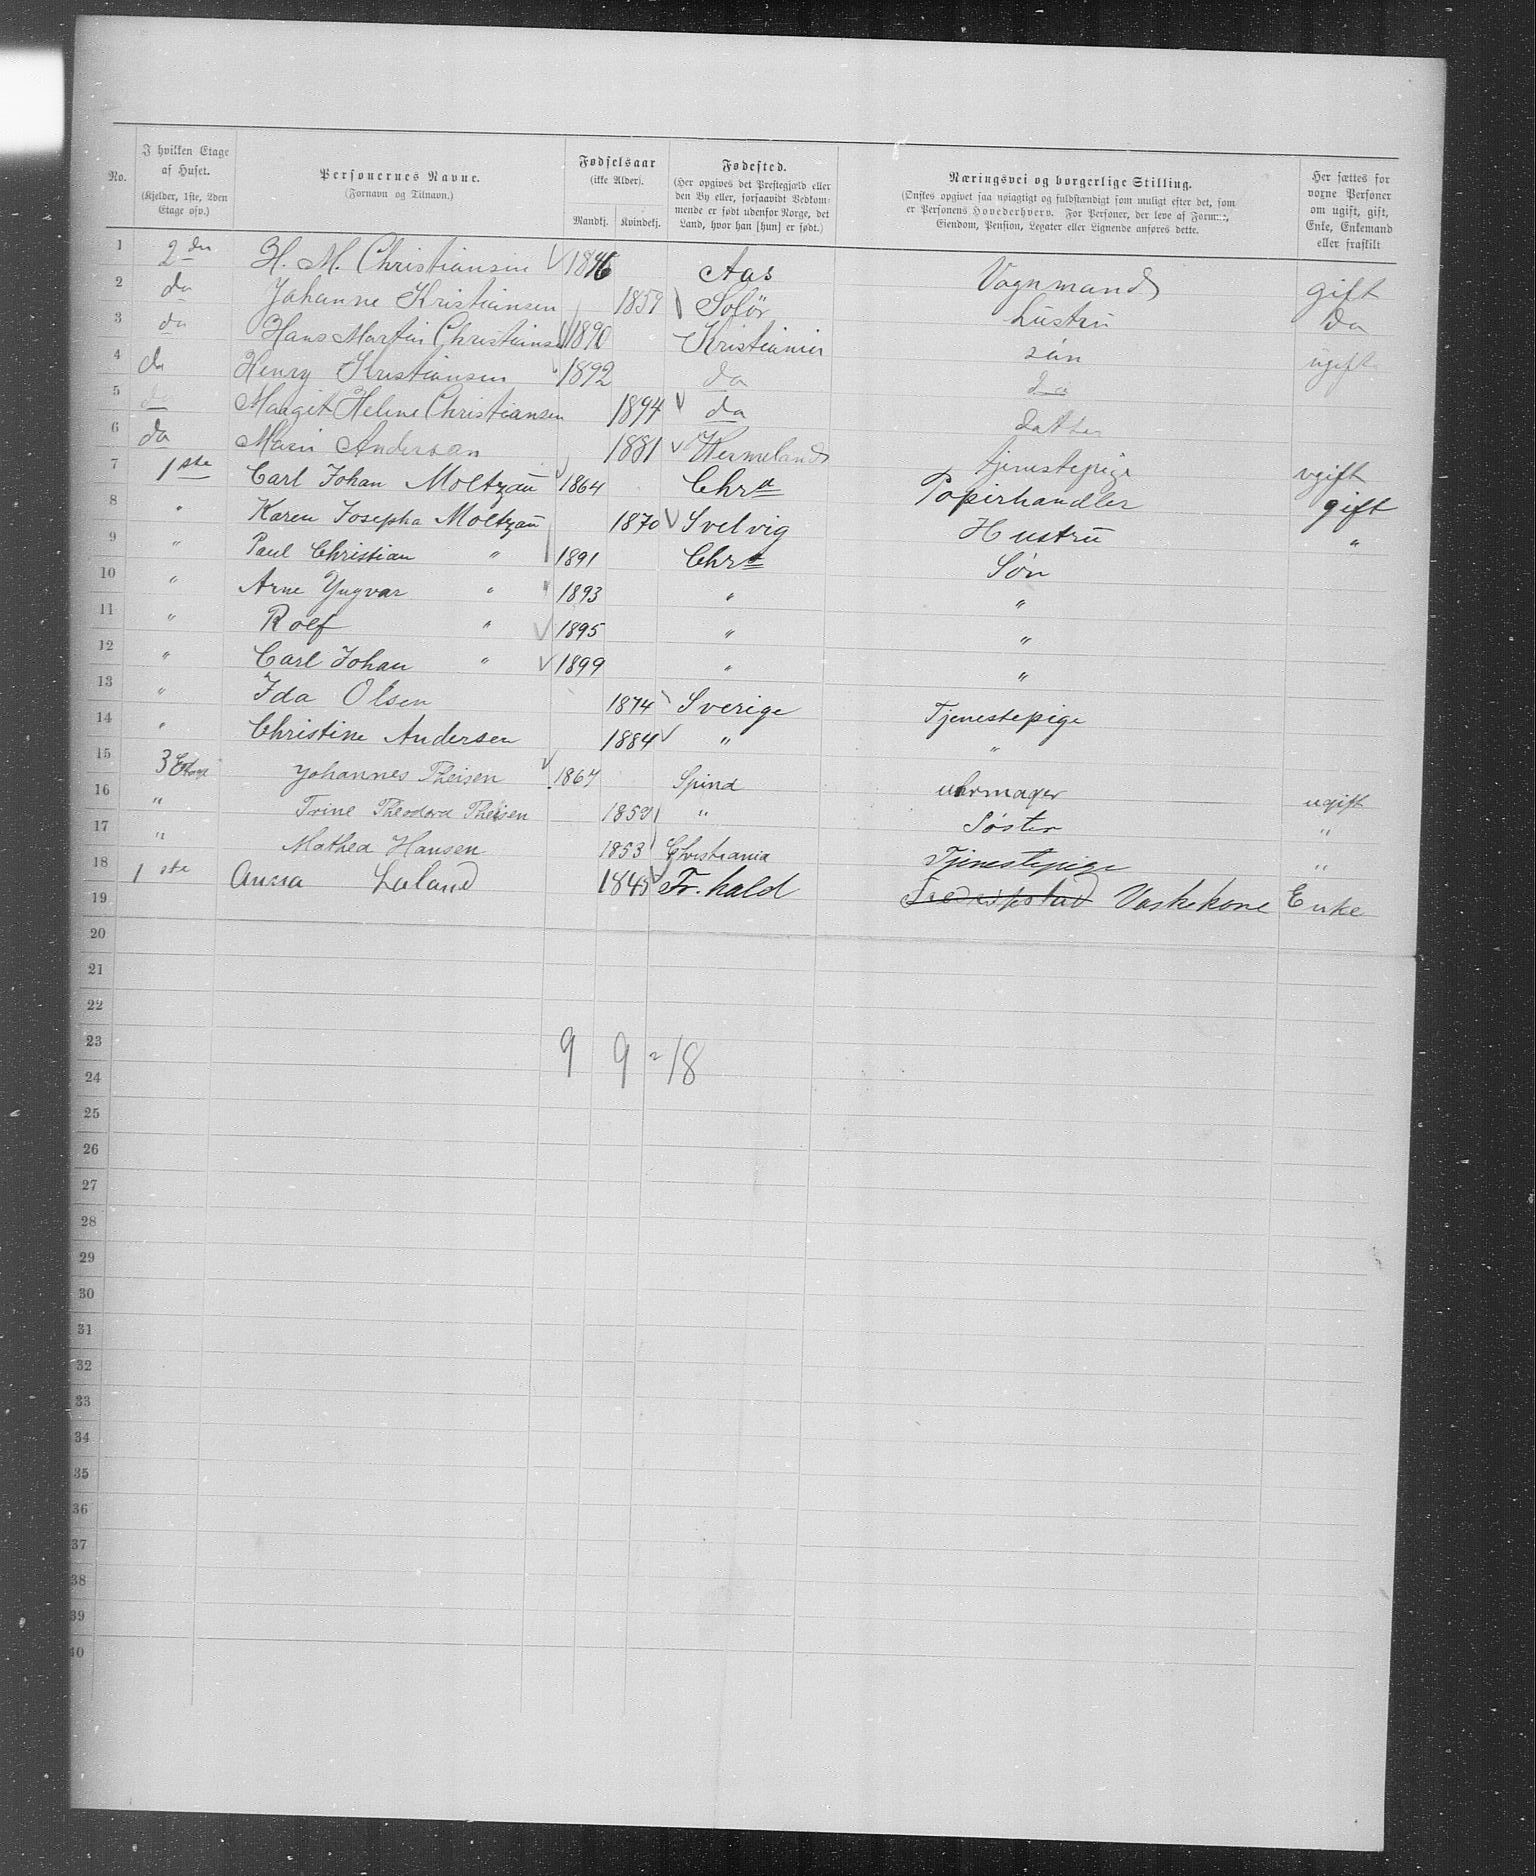 No. I hvilken Etage af Huset. (Kjelder, 1ste, 2den Etage osv.) Personernes Navne. (Fornavn og Tilnavn.) Fødselsaar (ikke Alder). Mandkj. Kvindekj. Fødested. (Her opgives det Prestegjæld eller den By eller, forsaavidt Vedkommende er født udenfor Norge, det Land, hvor han [hun] er født.) Næringsvei og borgerlige Stilling. (Ønskes opgivet saa nøiagtigt og fuldstændigt som muligt efter det, som er Personens Hovederhverv. For Personer, der leve af Formue, Eiendom, Pension, Legater eller Lignende anføres dette. Her sættes for voxne Personer om ugift, gift, Enke, Enkemand eller fraskilt
1 2den H. M. Christiansen 1846 Aas Vognmand gift
2 do Johanne Kristiansen 1859 Solør Hustru Do
3 do Hans Martin Christiansen 1890 Kristiania sön ugift
4 do Henry Kristiansen 1892 do do
5 do Maagit Helene Christiansen 1894 do datter
6 do Marie Anderson 1881 Wermeland tjenestepige ugift
7 1ste Carl Johan Moltzau 1864 Chra Papirhandler gift
8 " Karen Josepha Moltzau 1870 Svelvig Hustru "
9 " Paul Christian " 1891 Chra Søn
10 " Arne Yngvar " 1893 " "
11 " Rolf " 1895 " "
12 " Carl Johan " 1899 " "
13 " Ida Olsen 1874 Sverige Tjenestepige
14 " Christine Andersen 1884 " "
15 3 Etage Johannes Theisen 1867 Spind uhrmager ugift
16 " Trine Theodora Theisen 1859 " Søster "
17 " Mathea Hansen 1853 Christiania Tjenestepige "
18 1ste Anna Laland 1845 Fr.hald Fredrikstad Vaskekone Enke
19
20
21
22
23 9 9 = 18
24
25
26
27
28
29
30
31
32
33
34
35
36
37
38
39
40